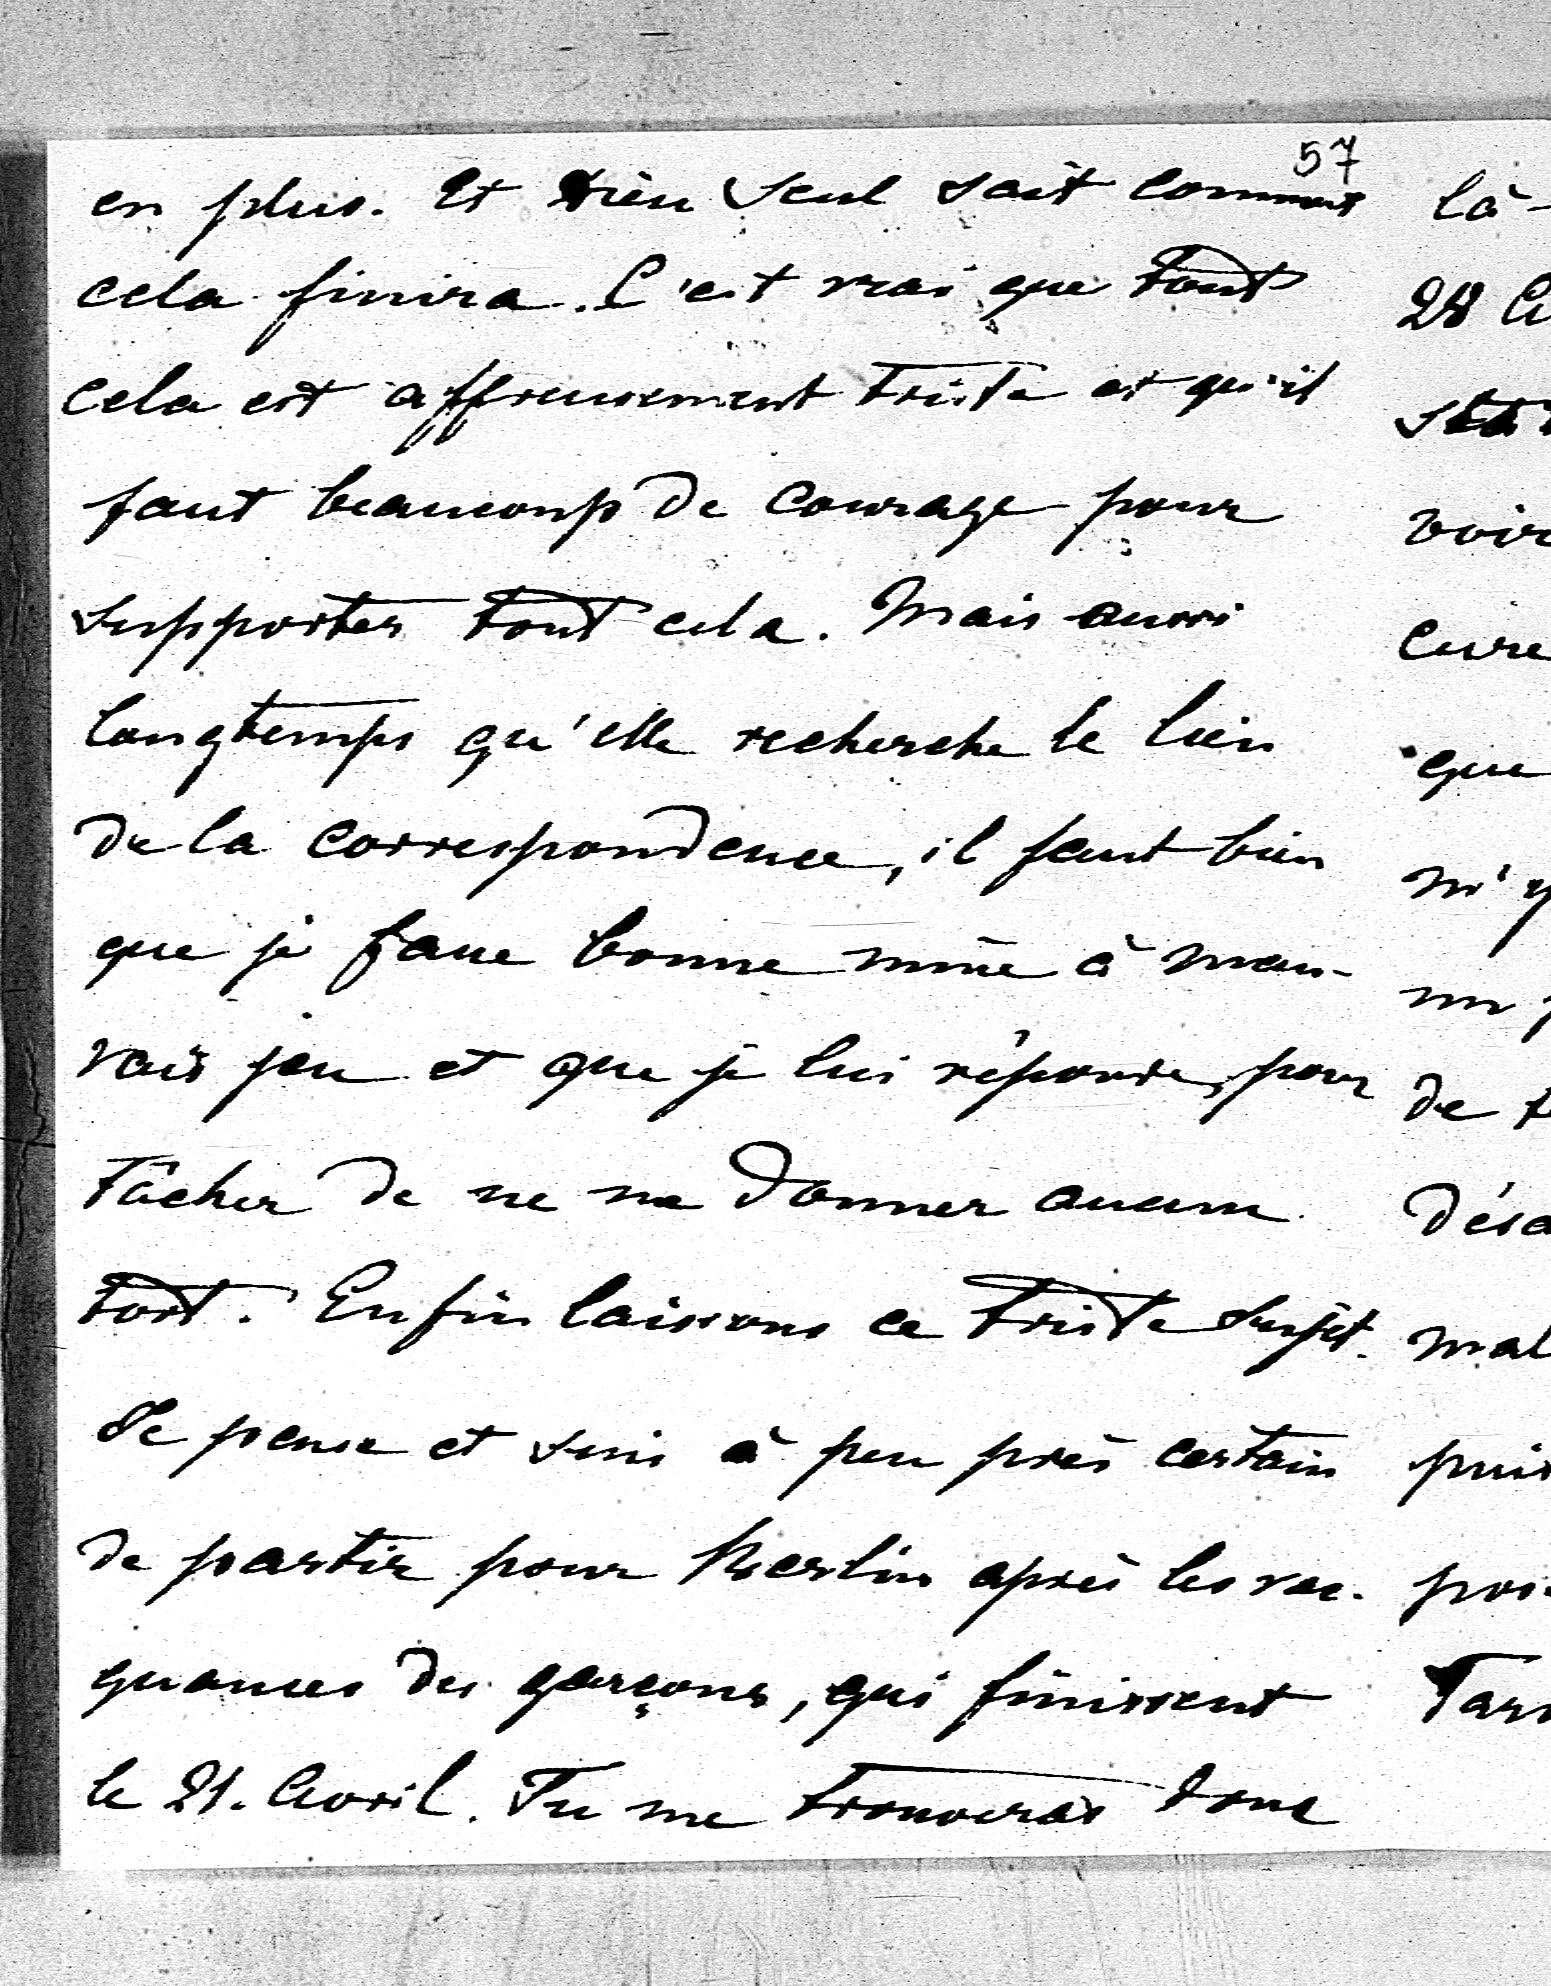 57
en plus. Et Dieu seul sait comment
cela finira. C'est vrai que tout
cela est affreusement triste et qu'il
faut beaucoup de courage pour
supporter tout cela. Mais aussi
longtemps qu'elle recherche le lien
de la correspondence, il faut bien
que je fasse bonne mine à mau-
vais jeu et que je lui réponde, pour
tâcher de ne me donner aucun
tort. Enfin laissons ce triste sujet.
Je pense et suis à peu près certain
de partir pour Berlin après les vac-
quances des garçons, qui finissent
le 21. Avril. Tu me trouveras donc
là-
28
voir
que
de
mal